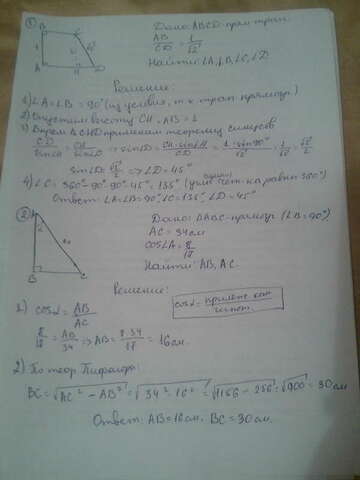 ① B C
1 √2
A H D
Дано: ABCD-прям. трап.
AB/CD = 1/√2
Найти: ∠A, ∠B, ∠C, ∠D
Решение:
1) ∠A = ∠B = 90° (из условия, т.к трап. прямоуг.)
2) Опустим высоту CH = AB = 1
3) В прям. Δ CHD применим теорему синусов
CD/sin∠H = CH/sin∠D => sin∠D = CH·sin∠H/CD = 1·sin90°/√2 = 1/√2 = √2/2
sin∠D = √2/2 => ∠D = 45°
4) ∠C = 360°-90°-90°-45° = 135° (сумма углов чет-ка равна 360°)
Ответ: ∠A=∠B=90°, ∠C=135°, ∠D=45°
② A
34
B C
Дано: ΔABC-прямоуг (∠B=90°)
AC = 34см
cos∠A = 8/17
Найти: AB, AC.
Решение:
1) cosα = AB/AC
cosα = прилеж. кат/гипот.
8/17 = AB/34 => AB = 8·34/17 = 16см.
2) По теор. Пифагора:
BC = √AC² - AB² = √34² - 16² = √1156 - 256 = √900 = 30см
Ответ: AB=16см, BC=30см.